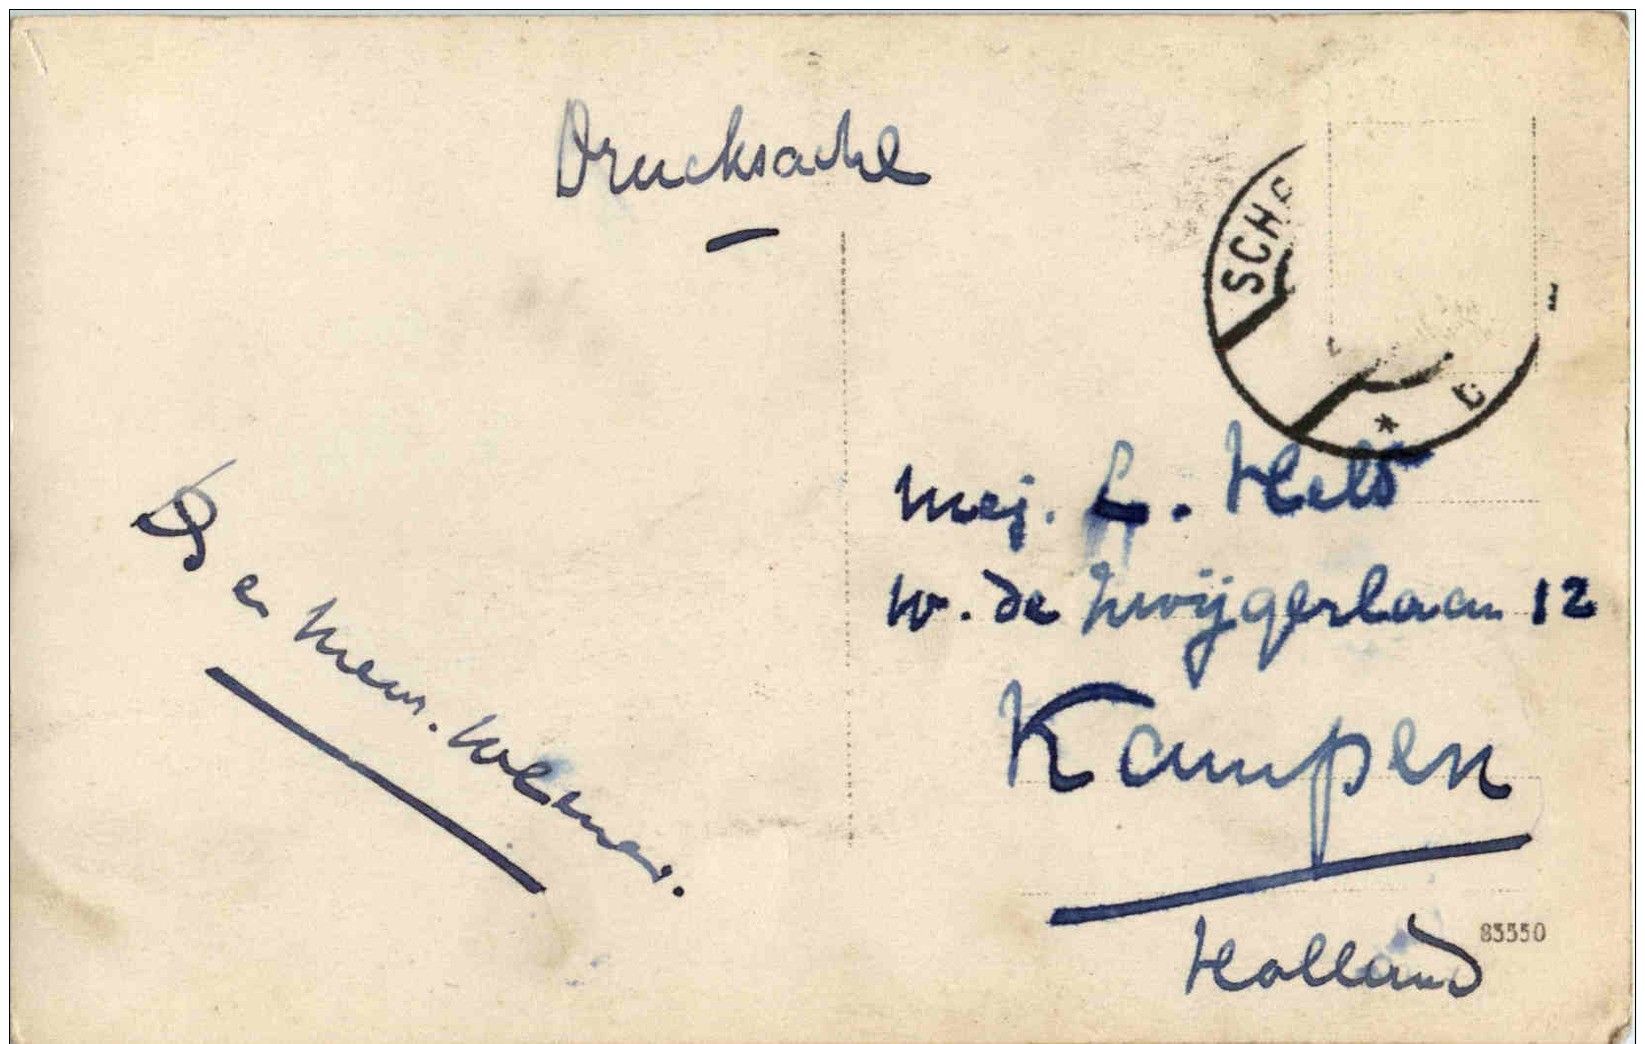 Drucksache
SCH
Mej. L. Held
W. de Zwijgerlaan 12
Kampen
Holland
85550